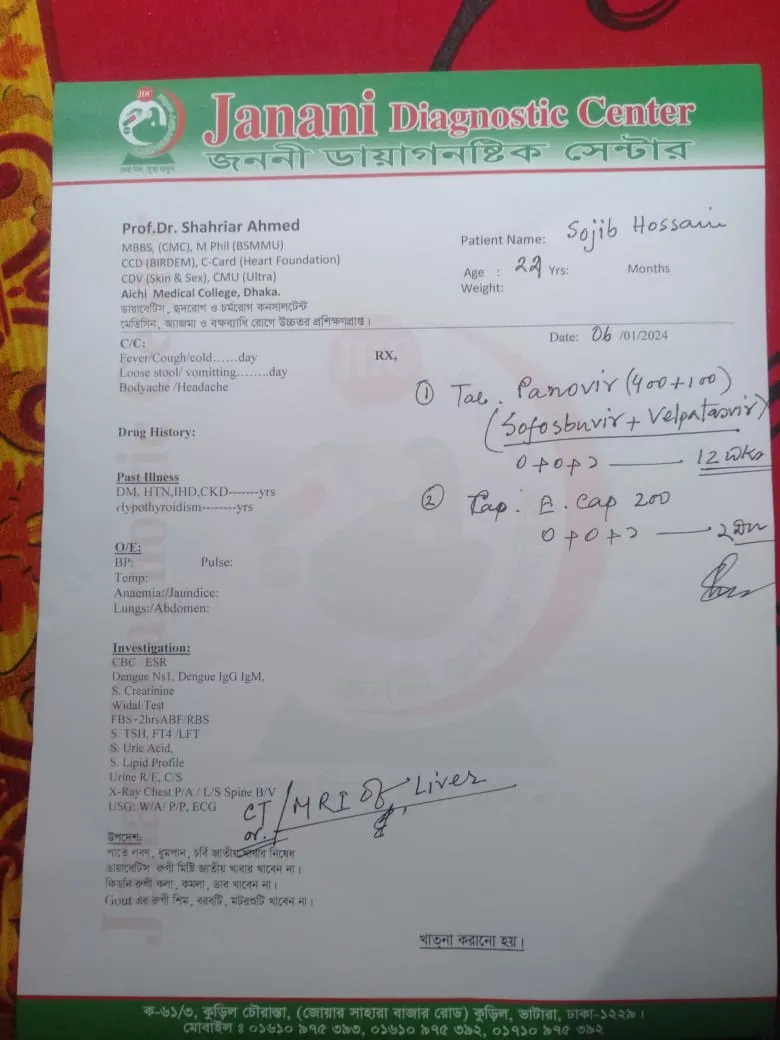 JDC
Janani Diagnostic Center
জননী ডায়াগনষ্টিক সেন্টার
Prof.Dr. Shahriar Ahmed
MBBS, (CMC), M Phil (BSMMU)
CCD (BIRDEM), C-Card (Heart Foundation)
CDV (Skin & Sex), CMU (Ultra)
Aichi Medical College, Dhaka.
ডায়াবেটিস, হৃদরোগ ও চর্মরোগ কনসালটেন্ট
মেডিসিন, অ্যাজমা ও বক্ষব্যাধি রোগে উচ্চতর প্রশিক্ষণপ্রাপ্ত।
Patient Name: Sojib Hossain
Age : 22 Yrs: Months
Weight:
Date: 06 /01/2024
C/C:
Fever/Cough/cold......day
Loose stool/ vomitting........day
Bodyache /Headache
Drug History:
Past Illness
DM. HTN,IHD,CKD-------yrs
Hypothyroidism--------yrs
O/E:
BP: Pulse:
Temp:
Anaemia:/Jaundice:
Lungs:/Abdomen:
Investigation:
CBC ESR
Dengue Ns1, Dengue IgG IgM,
S. Creatinine
Widal Test
FBS+2hrsABF/RBS
S. TSH, FT4 /LFT
S. Uric Acid,
S. Lipid Profile
Urine R/E, C/S
X-Ray Chest P/A / L/S Spine B/V
USG: W/A/ P/P, ECG
CT/MRI of Liver
or.
RX,
① Tab. Panovir (400+100)
(Sofosbuvir + Velpatasvir)
0+0+১ — 12 wks
② Cap. E. Cap 200
0+0+১ — ২ মাস
উপদেশ:
পাতে লবণ, ধুমপান, চর্বি জাতীয় খাবার নিষেধ
ডায়াবেটিস রুগী মিষ্টি জাতীয় খাবার খাবেন না।
কিডনি রুগী কলা, কমলা, ডাব খাবেন না।
Gout এর রুগী শিম, বরবটি, মটরশুটি খাবেন না।
খাতনা করানো হয়।
ক-৬১/৩, কুড়িল চৌরাস্তা, (জোয়ার সাহারা বাজার রোড) কুড়িল, ভাটারা, ঢাকা-১২২৯।
মোবাইল ঃ ০১৬১০ ৯৭৫ ৩৯৩, ০১৬১০ ৯৭৫ ৩৯২, ০১৭১০ ৯৭৫ ৩৯২